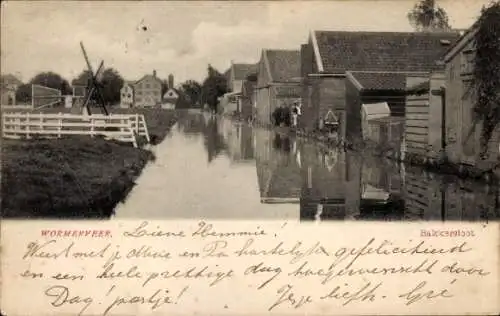 WORMERVEER. Bakkersloot
Lieve Hemmie!
Weest met je Moe en Pa hartelijk gefeliciteerd
en een heele prettige dag toegewenscht door
Dag! partij! Je, je liefh. Gré!